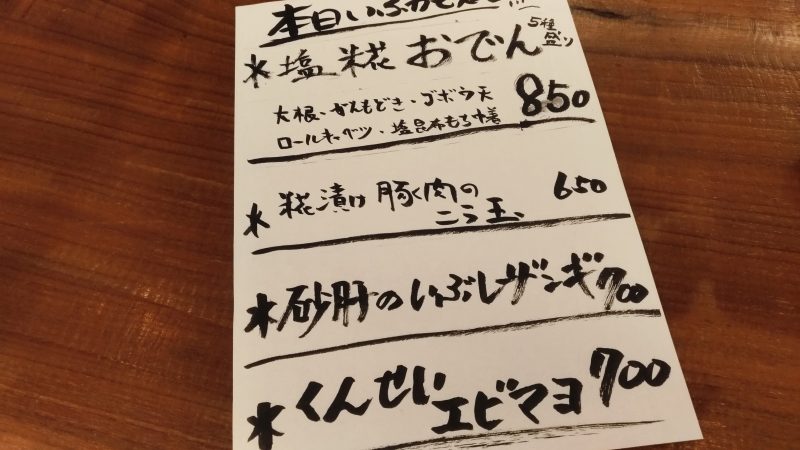 本日いぶかでんし!!!
*塩糀おでん 5種盛り
大根・がんもどき・ゴボウ天 850
ロールキャベツ・塩昆布もち巾着
*糀漬け豚肉の 650
ニラ玉、
*砂肝のいぶしザンギ 700
*くんせい
エビマヨ 700